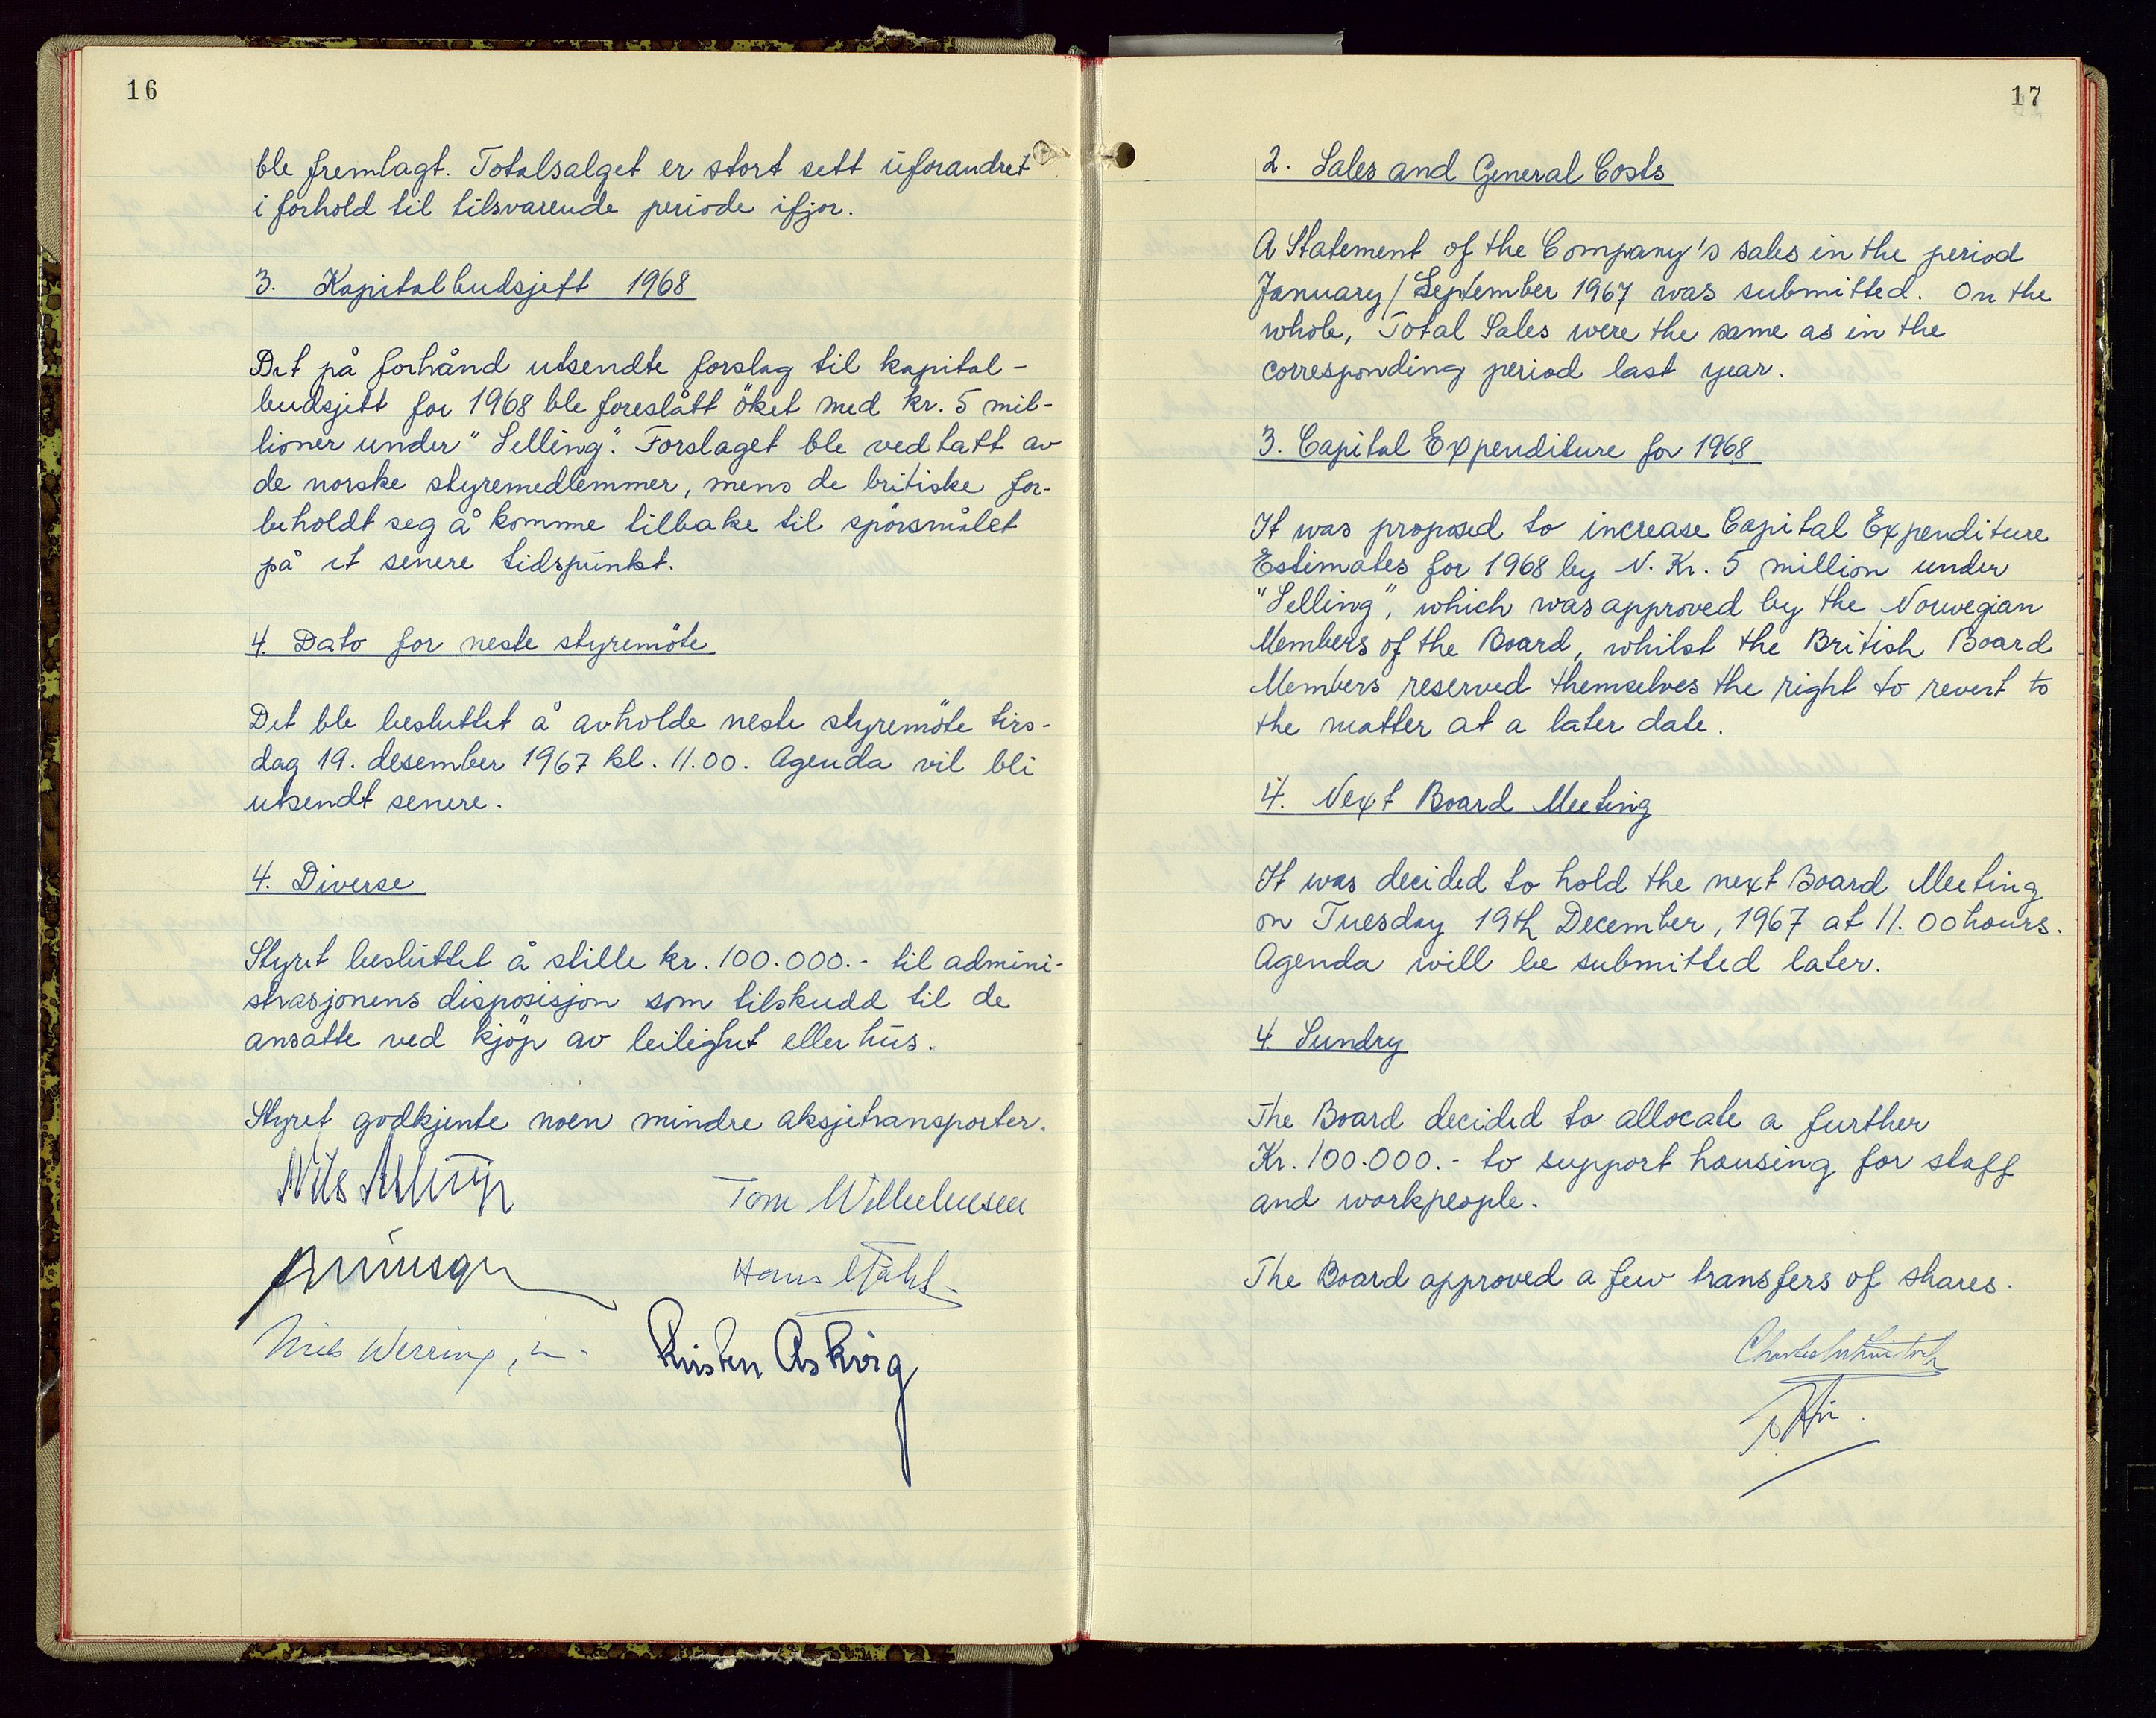 16
ble fremlagt. Totalsalget er stort sett uforandret
i forhold til tilsvarende periode ifjor.
3. Kapitalbudsjett 1968
Det på forhånd utsendte forslag til kapital-
budsjett for 1968 ble foreslått öket med kr. 5 mil-
lioner under "Selling". Forslaget ble vedtatt av
de norske styremedlemmer, mens de britiske for-
beholdt seg å komme tilbake til spörsmålet
på et senere tidspunkt.
4. Dato for neste styremöte
Det ble besluttet å avholde neste styremöte tirs-
dag 19. desember 1967 kl. 11.00. Agenda vil bli
utsendt senere.
4. Diverse
Styret besluttet å stille kr. 100.000.- til admini-
strasjonens disposisjon som tilskudd til de
ansatte ved kjöp av leilighet eller hus.
Styret godkjente noen mindre aksjetransporter.
Nils
Tom Wilhelmsen
Hans
Niels Werring, jr.
Kristen Askvig
17
2. Sales and General Costs
A Statement of the Company's sales in the period
January/September 1967 was submitted. On the
whole, Total Sales were the same as in the
corresponding period last year.
3. Capital Expenditure for 1968
It was proposed to increase Capital Expenditure
Estimates for 1968 by N. Kr. 5 million under
"Selling", which was approved by the Norwegian
Members of the Board, whilst the British Board
Members reserved themselves the right to revert to
the matter at a later date.
4. Next Board Meeting
It was decided to hold the next Board Meeting
on Tuesday 19th December, 1967 at 11.00 hours.
Agenda will be submitted later.
4. Sundry
The Board decided to allocate a further
Kr. 100.000.- to support housing for staff
and workpeople.
The Board approved a few transfers of shares.
Charles